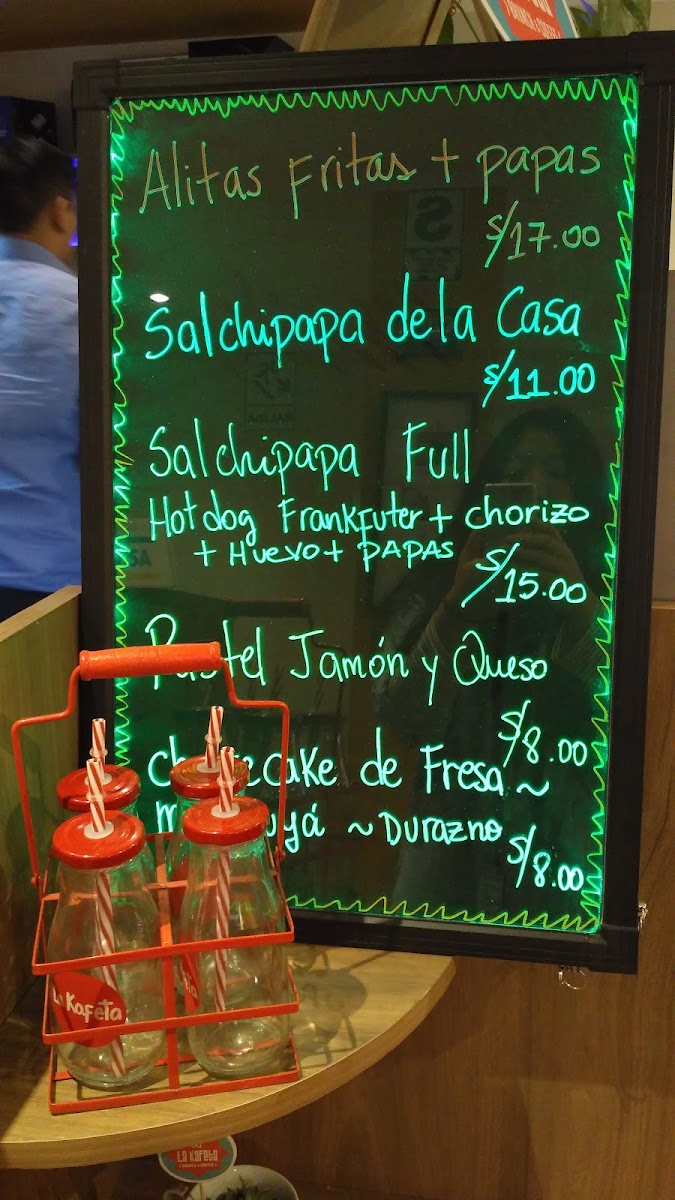 Alitas Fritas + papas
S/17.00
Salchipapa de la Casa
S/11.00
Salchipapa Full
Hotdog Frankfuter + chorizo
+ Huevo + PAPAS
S/15.00
Pastel Jamón y Queso
S/8.00
de Fresa ~
~ Durazno
S/8.00
La Kafeta
LA KaFeta